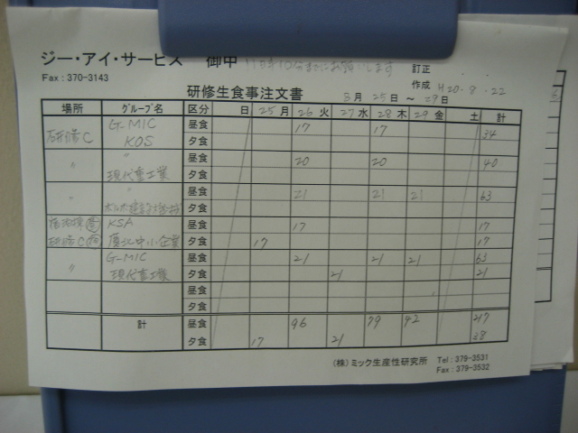 ジー・アイ・サービス 御中
Fax : 370-3143
訂正
作成 H20.8.22
研修生食事注文書 8月 25日 ~ 29日
場所 グループ名 区分 日 25 月 26 火 27 水 28 木 29 金 土 計
研修C G-MIC 昼食 17 17 34
KOS 夕食
〃 〃 昼食 20 20 40
現代重工業 夕食
〃 〃 昼食 21 21 21 63
夕食
KSA 昼食 17 17
中小企業 夕食 17 17
〃 G-MIC 昼食 21 21 21 63
現代重工業 夕食 21 21
昼食
夕食
計 昼食 96 79 42 217
夕食 17 21 38
(株)ミック生産性研究所 Tel : 379-3531
Fax : 379-3532